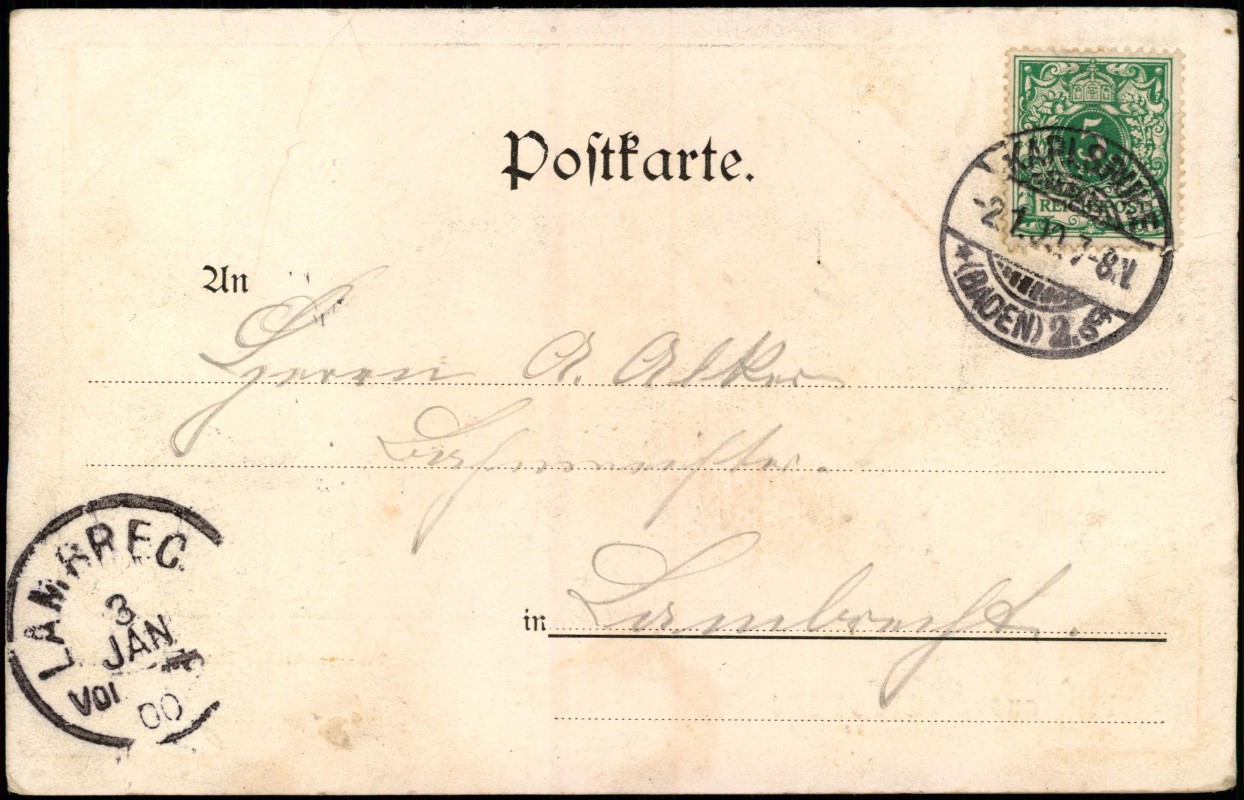 Postkarte.
5
REICHSPOST
KARLSRUHE
-2.1.00.7-8.V.
* (BADEN) 2.g
An
Herrn A. Alker
Bahnmeister.
in Lambrecht.
LAMBREC
3
JAN
VOI
00